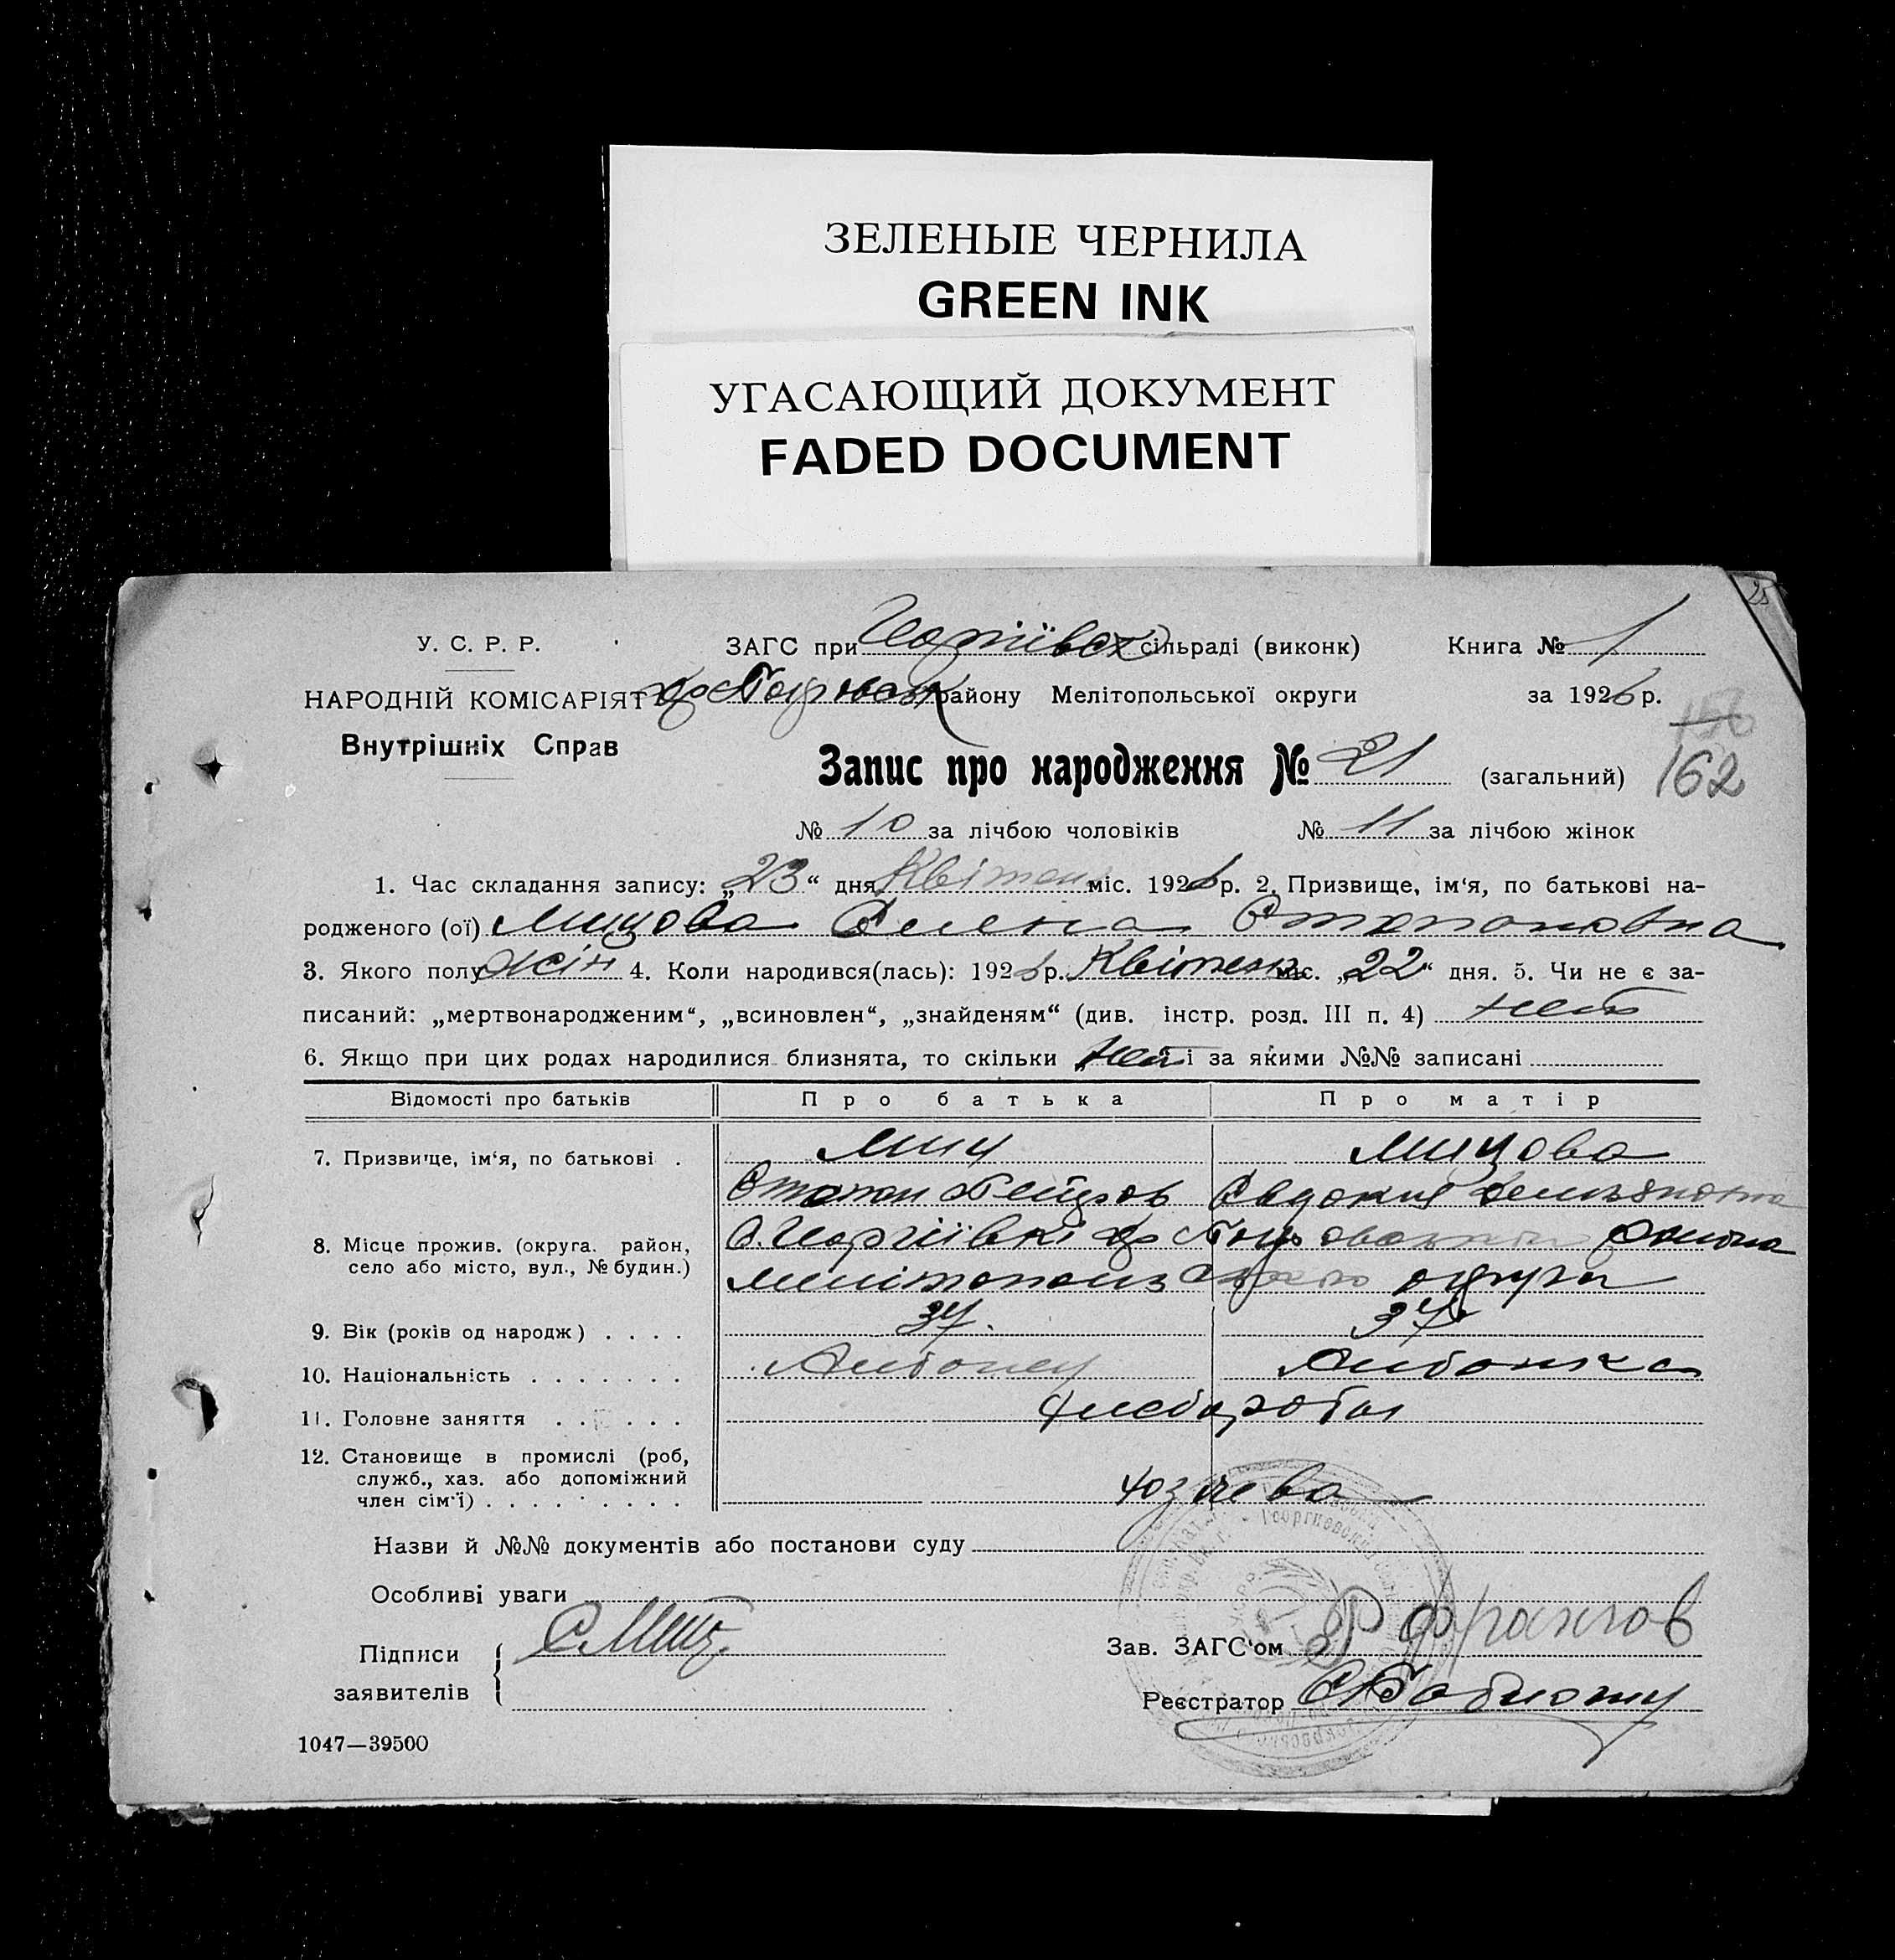 ЗЕЛЕНЫЕ ЧЕРНИЛА
GREEN INK
УГАСАЮЩИЙ ДОКУМЕНТ
FADED DOCUMENT
У. С. Р. Р.
ЗАГС при Георгіївск сільраді (виконк) Книга № 1
НАРОДНІЙ КОМІСАРІЯТ
району Мелітопольської округи за 1926 р.
Внутрішніх Справ
156
162
Запис про народження № 21 (загальний)
№ 10 за лічбою чоловіків № 11 за лічбою жінок
1. Час складання запису: „23“ дня Квітень міс. 1926 р. 2. Призвище, ім‘я, по батькові на-
родженого (ої) Мицова Елена Степановна
3. Якого полу жін 4. Коли народився(лась): 1926 р. Квітень міс. „22“ дня. 5. Чи не є за-
писаний: „мертвонародженим“, „всиновлен“, „знайденям“ (див. інстр. розд. III п. 4) нет
6. Якщо при цих родах народилися близнята, то скільки нет і за якими №№ записані
Відомості про батьків Про батька Про матір
7. Призвище, ім‘я, по батькові . Миц Мицова
Степан Петров Євдокия Демьяновна
8. Місце прожив. (округа. район, село або місто, вул., № будин.) С. Георгіївкі району
Мелітопольского округи
9. Вік (років од народж) . . . . 37. 37
10. Національність . . . . . . . Албонец Албонка
11. Головне заняття . . . . . . хлебороби
12. Становище в промислі (роб,
служб., хаз. або допоміжний
член сім‘ї) . . . . . . . . . . хозяева
Назви й №№ документів або постанови суду
Особливі уваги
Підписи
заявителів
С Миц
Зав. ЗАГС‘ом
Реєстратор
1047—39500